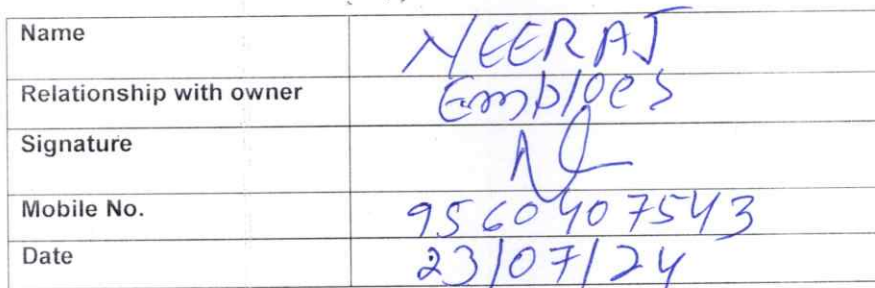 Name NEERAJ
Relationship with owner Emploes
Signature
Mobile No. 9560407543
Date 23/07/24